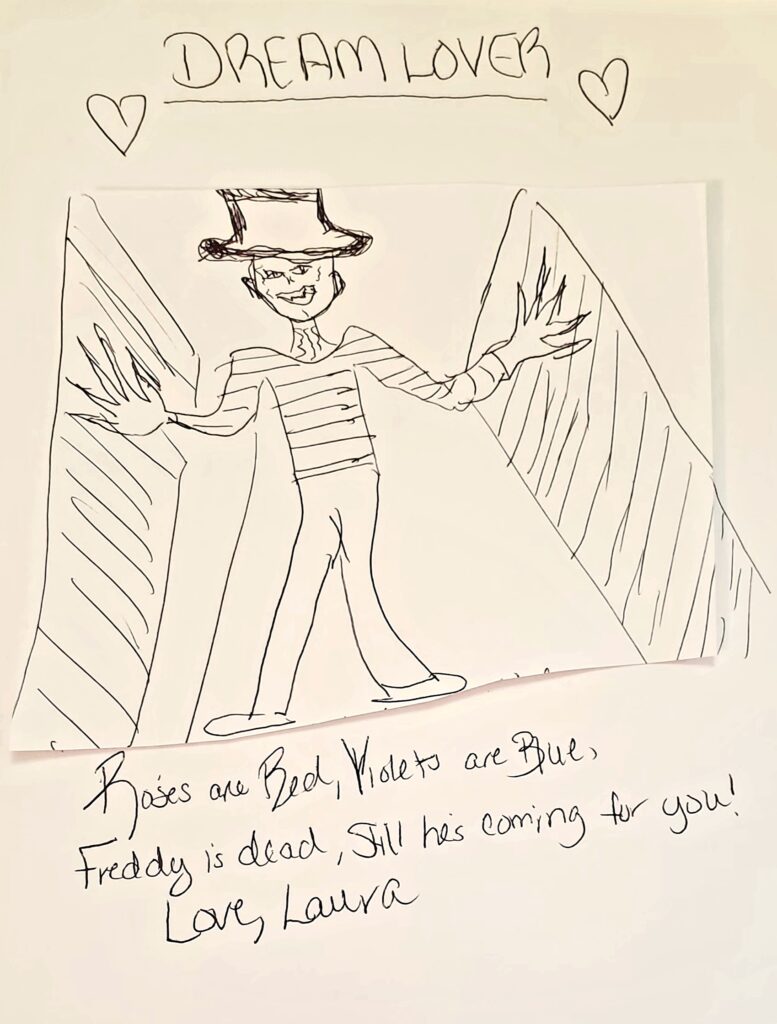 DREAM LOVER
Roses are Red, Violets are Blue,
Freddy is dead, Still he's coming for you!
Love, Laura